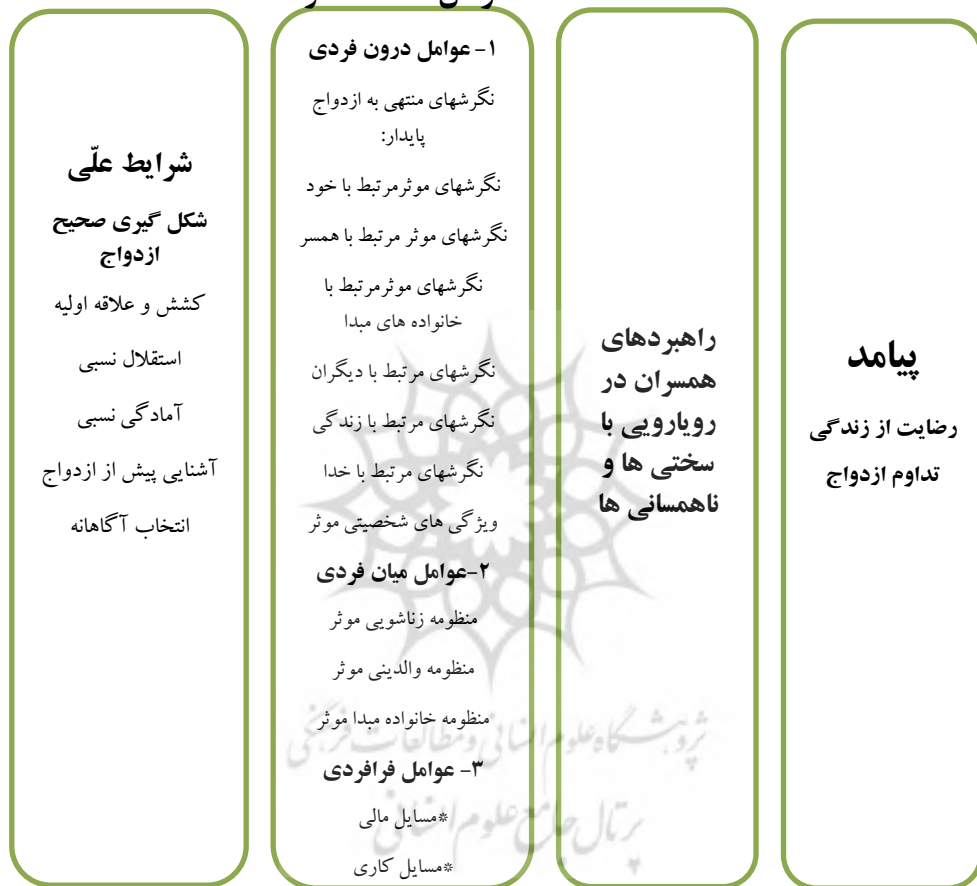 شرایط علّی
شکل گیری صحیح
ازدواج
کشش و علاقه اولیه
استقلال نسبی
آمادگی نسبی
آشنایی پیش از ازدواج
انتخاب آگاهانه
۱- عوامل درون فردی
نگرشهای منتهی به ازدواج
پایدار:
نگرشهای موثرمرتبط با خود
نگرشهای موثر مرتبط با همسر
نگرشهای موثرمرتبط با
خانواده های مبدا
نگرشهای مرتبط با دیگران
نگرشهای مرتبط با زندگی
نگرشهای مرتبط با خدا
ویژگی های شخصیتی موثر
۲-عوامل میان فردی
منظومه زناشویی موثر
منظومه والدینی موثر
منظومه خانواده مبدا موثر
۳- عوامل فرافردی
*مسایل مالی
*مسایل کاری
راهبردهای
همسران در
رویارویی با
سختی ها و
ناهمسانی ها
پیامد
رضایت از زندگی
تداوم ازدواج
پژوهشگاه علوم انسانی و مطالعات فرهنگی
پرتال جامع علوم انسانی